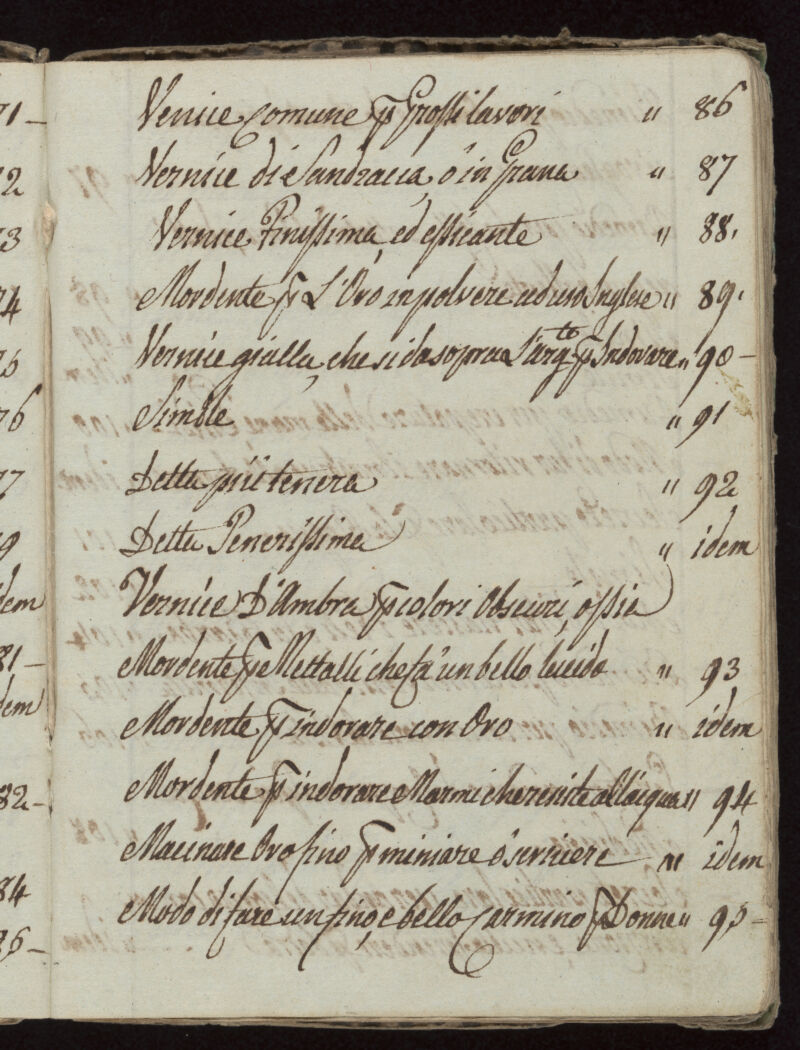 71-
Vernice comune p Grossi lavori " 86
72
Vernice di Sandracca, o' in Grana " 87
73
Vernice Finissima, ed essicante " 88.
74
Mordente p L'Oro in polvere ad uso Inglese " 89.
75
Vernice gialla, che si da sopra L'arg.to p Indorare " 90-
76
Simile " 91
77
Detta più tenera " 92
79
Detta Tenerissima " idem
idem
Vernice D'Ambra p colori Obscuri, ossia
81-
Mordente p Mettalli che fa' un bello lucido " 93
idem
Mordente p indorare con Oro " idem
82-
Mordente p indorare Marmi che resiste all'aqua " 94
Macinare Oro fino p miniare o' scrivere " idem
84
Modo di fare un fino, e bello Carmino p Donne " 95-
85-